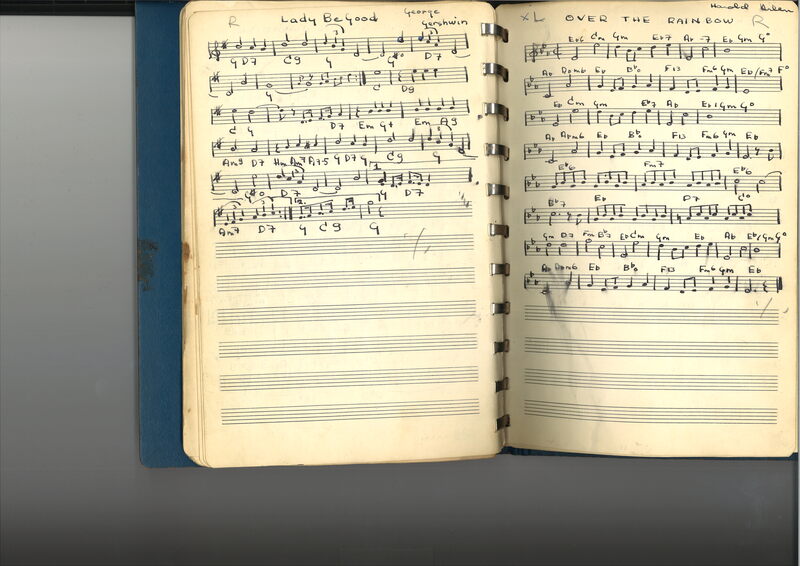 R Lady Be Good George Gershwin
G D7 C9 G G#o D7
G C D9
C G D7 Em G+ Em A9
Am9 D7 Hm Am7 A7-5 G D7 G C9 G
G#o D7 G D7
Am7 D7 G C9 G
XL OVER THE RAINBOW R Harold Arlen
Eb6 Cm Gm Eb7 Ab -7 Eb Gm Go
Ab Abm6 Eb Bbo F13 Fm6 Gm Eb/Fm7 Fo
Eb Cm Gm Eb7 Ab Eb Gm Go
Ab Abm6 Eb Bbo F13 Fm6 Gm Eb
Eb6 Fm7 Eb6
Bb7 Eb D7 Co
Gm D7 Fm Bb7 Eb Cm Gm Eb Ab Eb Gm Go
Ab Abm6 Eb Bbo F13 Fm6 Gm Eb